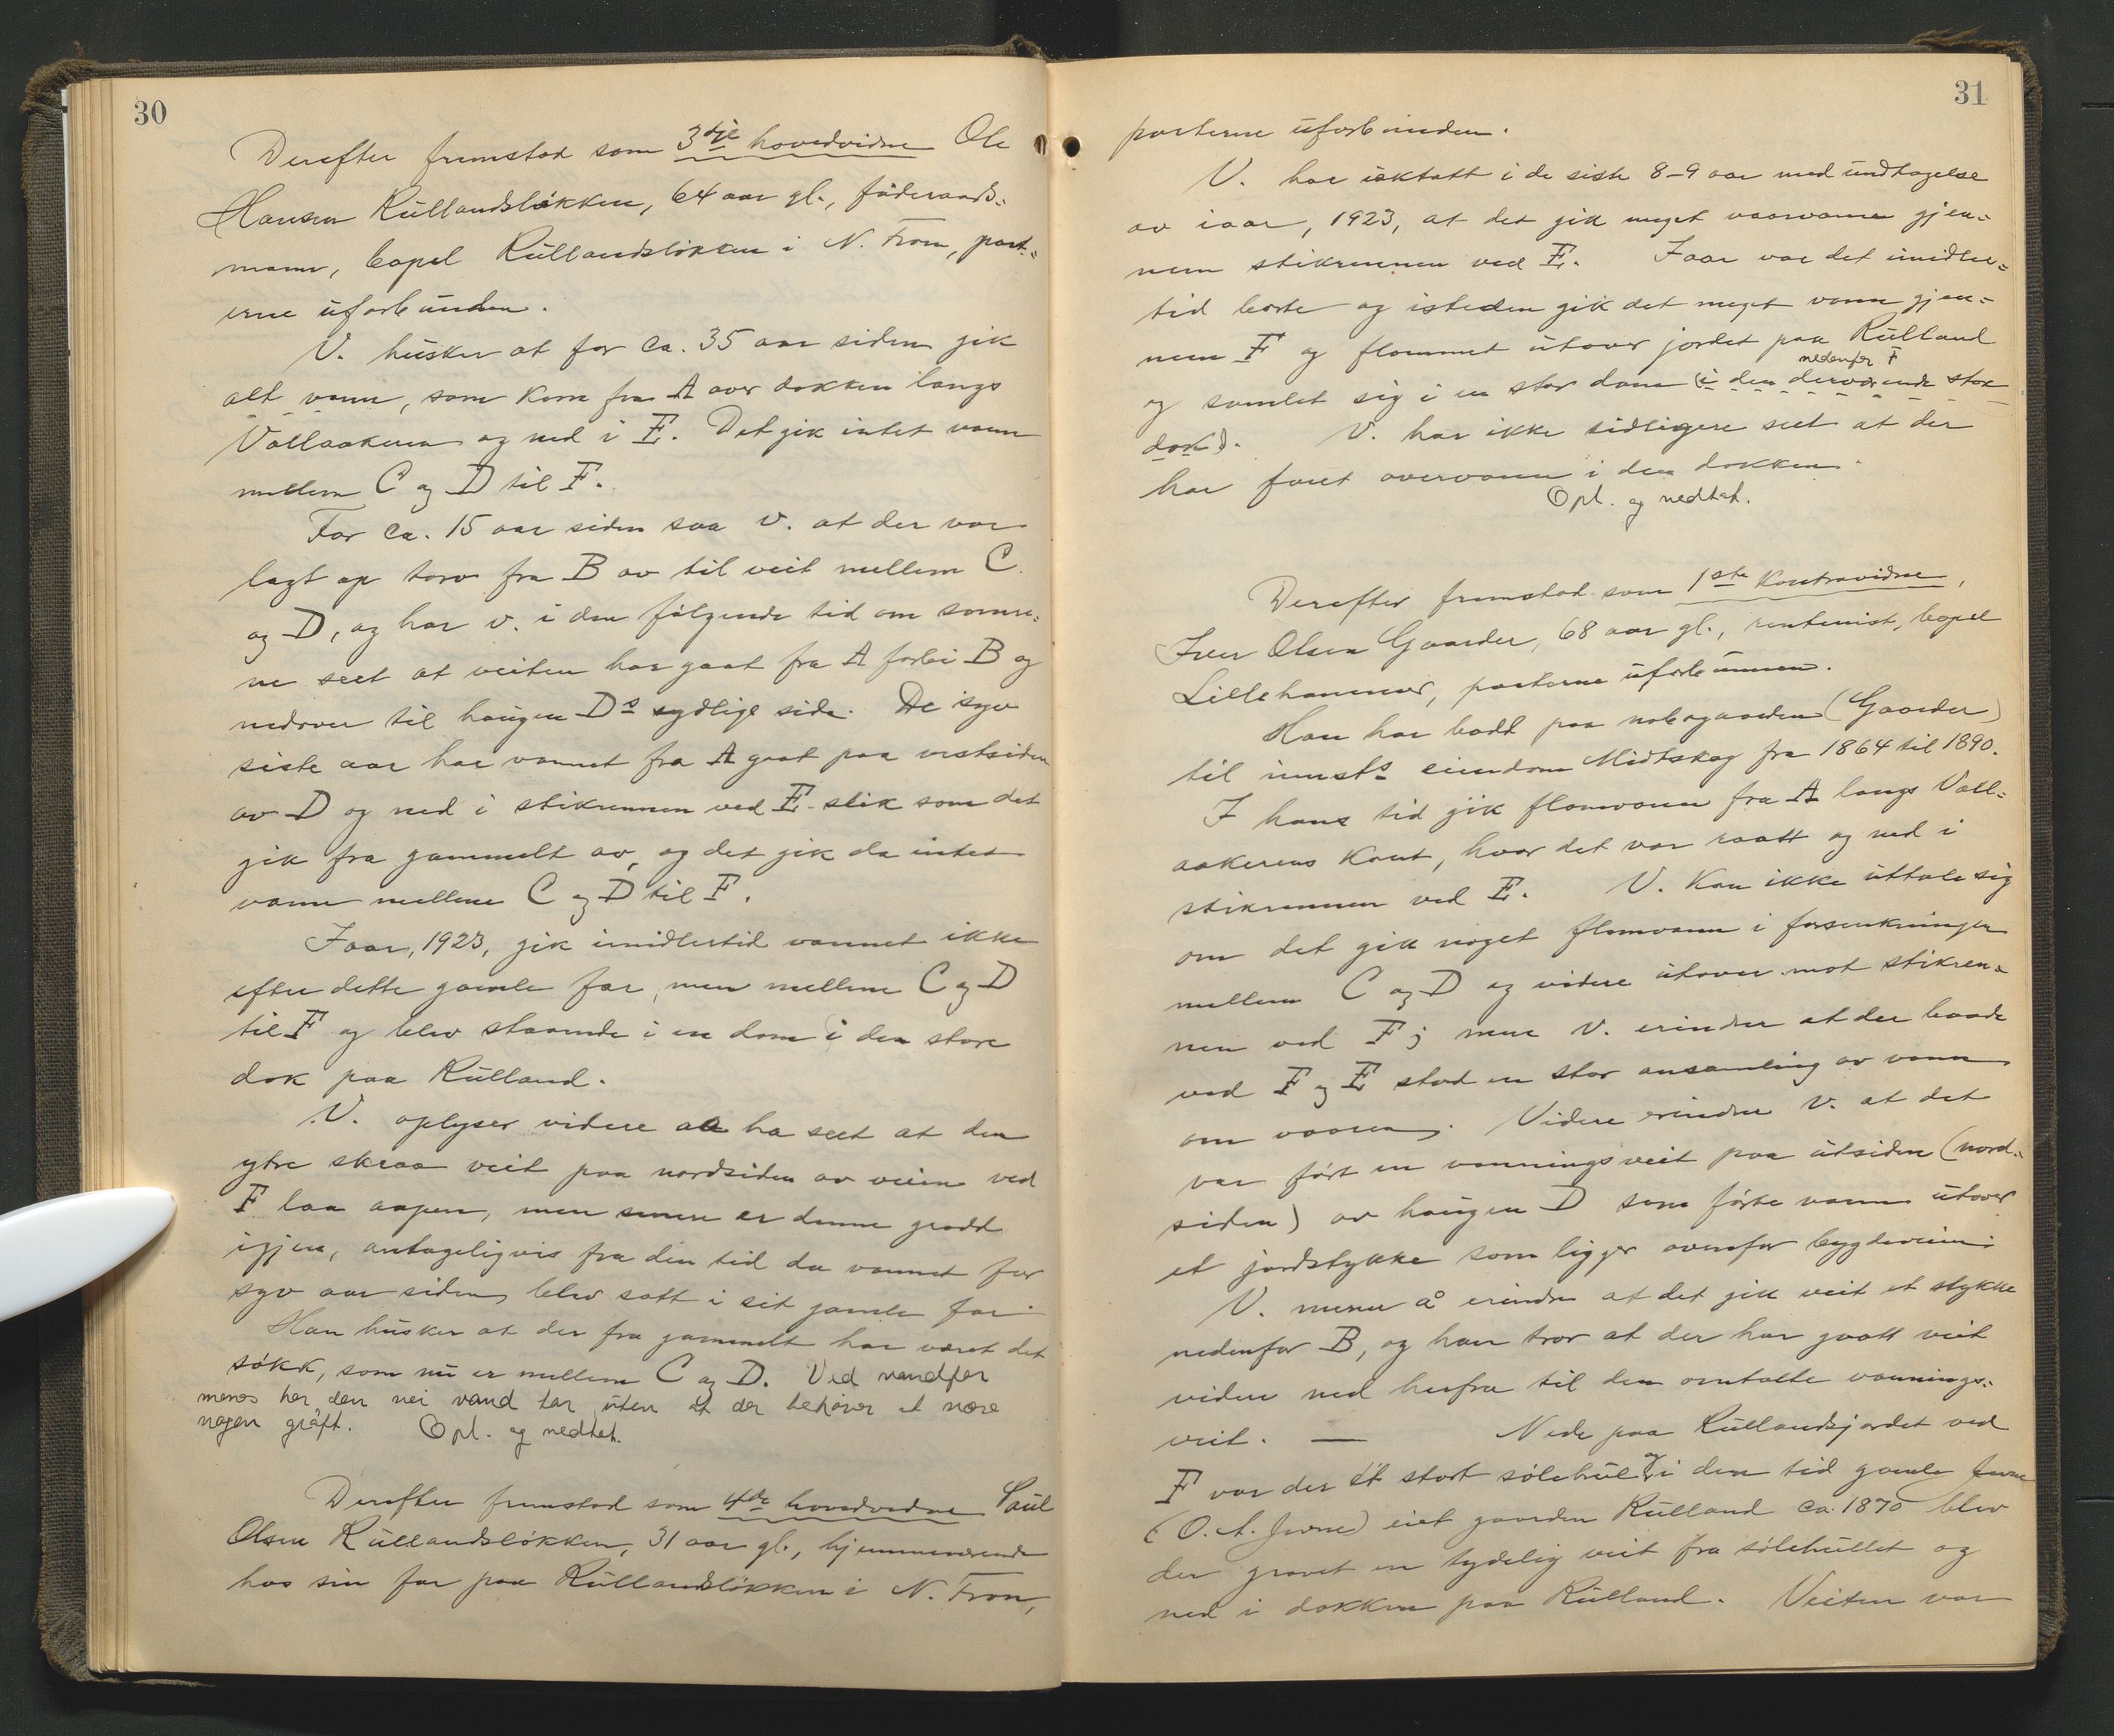 30
Derefter fremstod som 3dje hovedvidne Ole
Hansen Rullandsløkken, 64 aar gl., føderaads-
mann, bopel Rullandsløkken i N. Fron, part-
erne uforbunden.
V. husker at for ca. 35 aar siden gik
alt vann, som kom fra A over dokken langs
Vollaakeren og ned i E. Det gik intet vann
mellem C og D til F.
For ca. 15 aar siden saa v. at der var
lagt op torv fra B av til veit mellem C
og D, og har v. i den følgende tid om somre-
ne seet at veiten har gaat fra A forbi B og
nedover til haugen Ds sydlige side. De syv
siste aar har vannet fra A gaat paa vestsiden
av D og ned i stikrennen ved E slik som det
gik fra gammelt av, og det gik da intet
vann mellem C og D til F.
Iaar, 1923, gik imidlertid vannet ikke
efter dette gamle far, men mellem C og D
til F og blev staaende i en dam i den store
dok paa Rulland.
V. oplyser videre aa ha seet at den
ytre skraa veit paa nordsiden av veien ved
F laa aapen, men senere er denne grodd
igjen, antageligvis fra den tid da vannet for
syv aar siden blev satt i sit gamle far.
Han husker at der fra gammelt har været det
søkk, som nu er mellem C og D. Ved vandfar
menes her den vei vand tar uten at der behøver at være
nogen grøft. Opl. og nedtat.
Derefter fremstod som 4de hovedvidne Paul
Olsen Rullandsløkken, 31 aar gl., hjemmeværende
hos sin far paa Rullandsløkken i N. Fron,
31
parterne uforbunden.
V. har iakttatt i de siste 8-9 aar med undtagelse
av iaar, 1923, at det gik meget vaarvann gjen-
nem stikrennen ved E. Iaar var det imidler-
tid borte og isteden gik det meget vann gjen-
nem F og flommet utover jordet paa Rulland
nedenfor F
og samlet sig i en stor dam (i den derværende store
dok). V. har ikke tidligere seet at der
har faret overvann i den dokken.
Opl. og nedtat.
Derefter fremstod som 1ste kontravidne,
Iver Olsen Gaarder, 68 aar gl., rentenist, bopel
Lillehammer, parterne uforbunnen.
Han har bodd paa nabogaarden (Gaarder)
til innsts eiendom Midtskog fra 1864 til 1890.
I hans tid gik flomvann fra A langs Voll-
aakerens kant, hvor det var raatt og ned i
stikrennen ved E. V. kan ikke uttale sig
om det gik noget flomvann i forsenkningen
mellem C og D og videre utover mot stikren-
nen ved F; men v. erindrer at der baade
ved F og E stod en stor ansamling av vann
om vaaren. Videre erindrer v. at det
var ført en vanningsveit paa utsiden (nord-
siden) av haugen D som førte vann utover
et jordstykke som ligger ovenfor bygdeveien.
V. mener å erindre at det gik veit et stykke
nedenfor B, og han tror at der har gaatt veit
videre ned herfra til den omtalte vannings-
veit. — Nede paa Rullandsjordet ved
F var der et stort sølehul og i den tid gamle Furne
(O. A. Furne) eiet gaarden Rulland ca. 1870 blev
der gravet en tydelig veit fra sølehullet og
ned i dokken paa Rulland. Veiten var